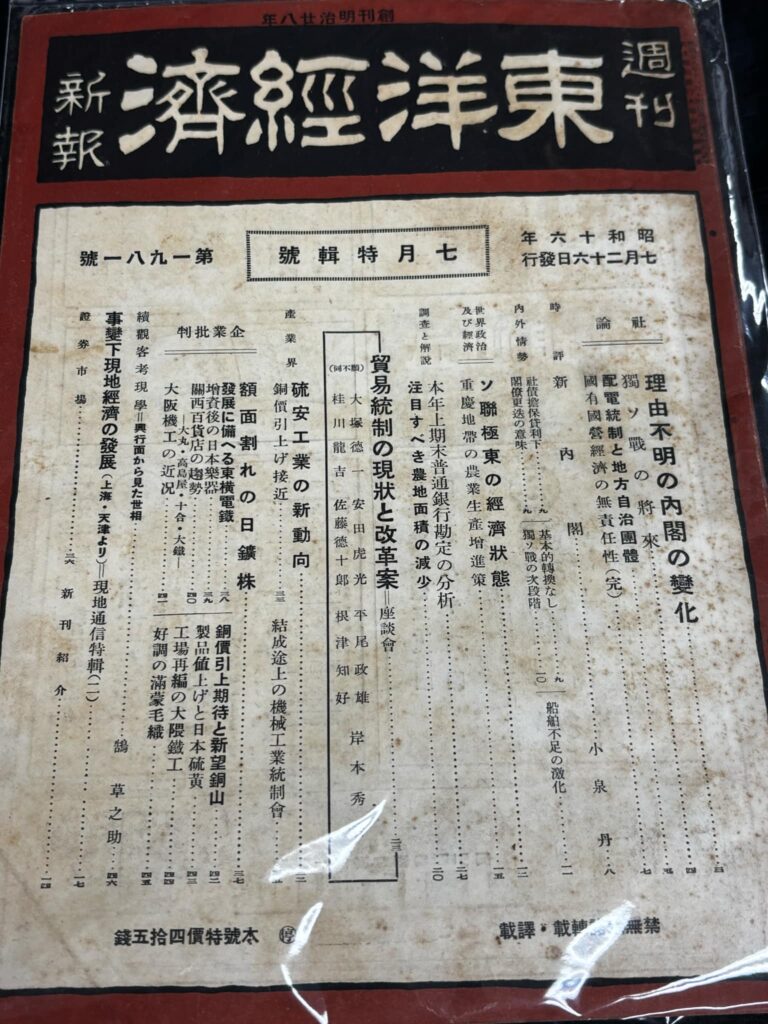 創刊明治廿八年
週刊
東洋經濟
新報
昭和十六年
七月二十六日發行
七月特輯號
第一九八一號
社論
理由不明の內閣の變化
獨ソ戰の將來
配電統制と地方自治團體
國有國營經濟の無責任性(完) 小泉丹 八
時評 新內閣
內外情勢
社債擔保貸利下 基本的轉換なし 船舶不足の激化
閣僚更迭の意味 獨ソ戰の次段階
世界政治及び經濟
ソ聯極東の經濟狀態
重慶地帶の農業生產增進策
調查と解說
本年上期末普通銀行勘定の分析
注目すべき農地面積の減少 二〇
貿易統制の現狀と改革案=座談會 二三
(順不同)
大塚德一 安田虎光 平尾政雄 岸本秀
桂川龍吉 佐藤德十郎 根津知好
產業界
硫安工業の新動向
銅價引上げ接近 三三 結成途上の機械工業統制會
企業批判
額面割れの日鑛株 三七
發展に備へる東橫電鐵 三八 銅價引上期待と新望銅山 四二
增資後の日本樂器 三九 製品値上げと日本硫黃 四三
關西百貨店の趨勢 四〇 工場再編の大隈鐵工 四四
―大丸・高島屋・十合・大鐵―
大阪機工の近況 四一 好調の滿蒙毛織 四四
續觀客考現學=興行面から見た世相 四五
事變下現地經濟の發展(上海・天津より)=現地通信特輯(二) 鵠草之助 四六
證券市場 二六 新刊紹介 一四
禁無 轉載・譯載
停
本號特價四拾五錢